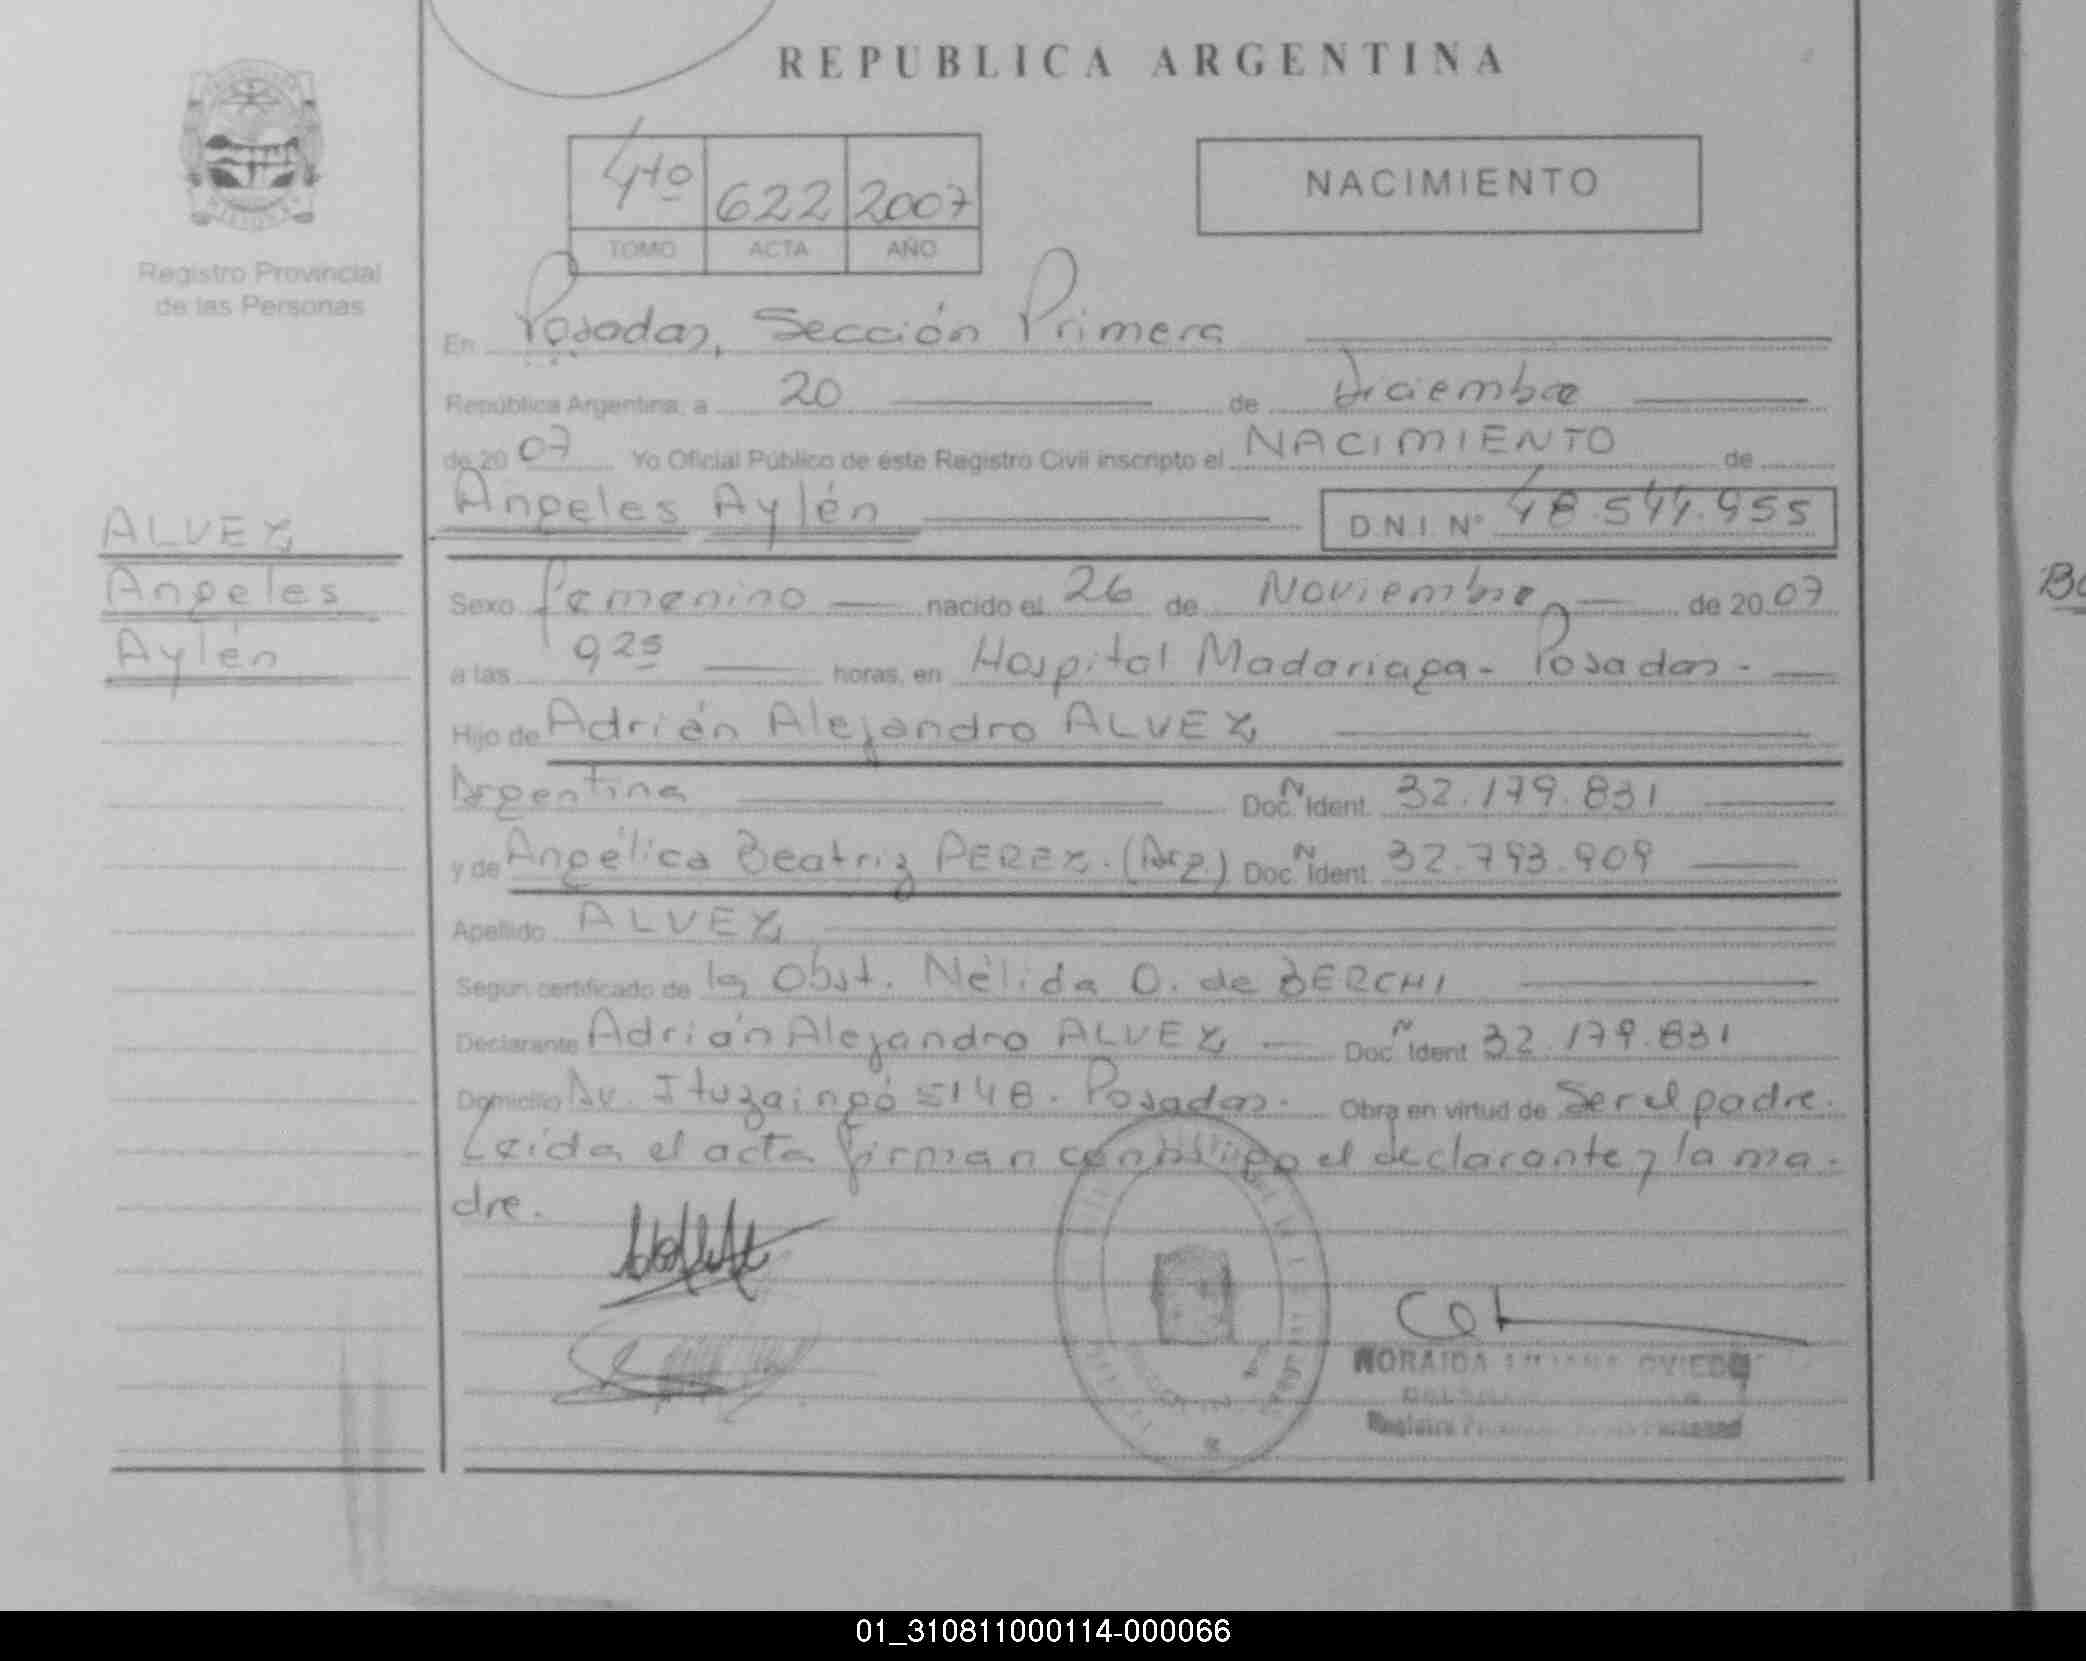 REPUBLICA ARGENTINA
4to 622 2007
TOMO ACTA AÑO
NACIMIENTO
Registro Provincial
de las Personas
En Posadas, Sección Primera
República Argentina, a 20 de Diciembre
de 20 07 Yo Oficial Público de éste Registro Civil inscripto el NACIMIENTO de
Angeles Aylén D.N.I. Nº 48.544.955
ALVEZ
Angeles
Aylén
Sexo femenino nacido el 26 de Noviembre de 20 07
a las 9 25 horas, en Hospital Madariaga - Posadas -
Hijo de Adrián Alejandro ALVEZ
Argentina Doc. N Ident. 32.179.831
y de Angélica Beatriz PEREZ. (Arg.) Doc. N Ident. 32.793.909
Apellido ALVEZ
Según certificado de la Obst. Nélida O. de BERCHI
Declarante Adrián Alejandro ALVEZ Doc. N Ident 32.179.831
Domicilio Av. Ituzaingó 5148. Posadas. Obra en virtud de Ser el padre.
Leída el acta firman conmigo el declarante y la ma-
dre.
OVIEDO
Registro
01_310811000114-000066